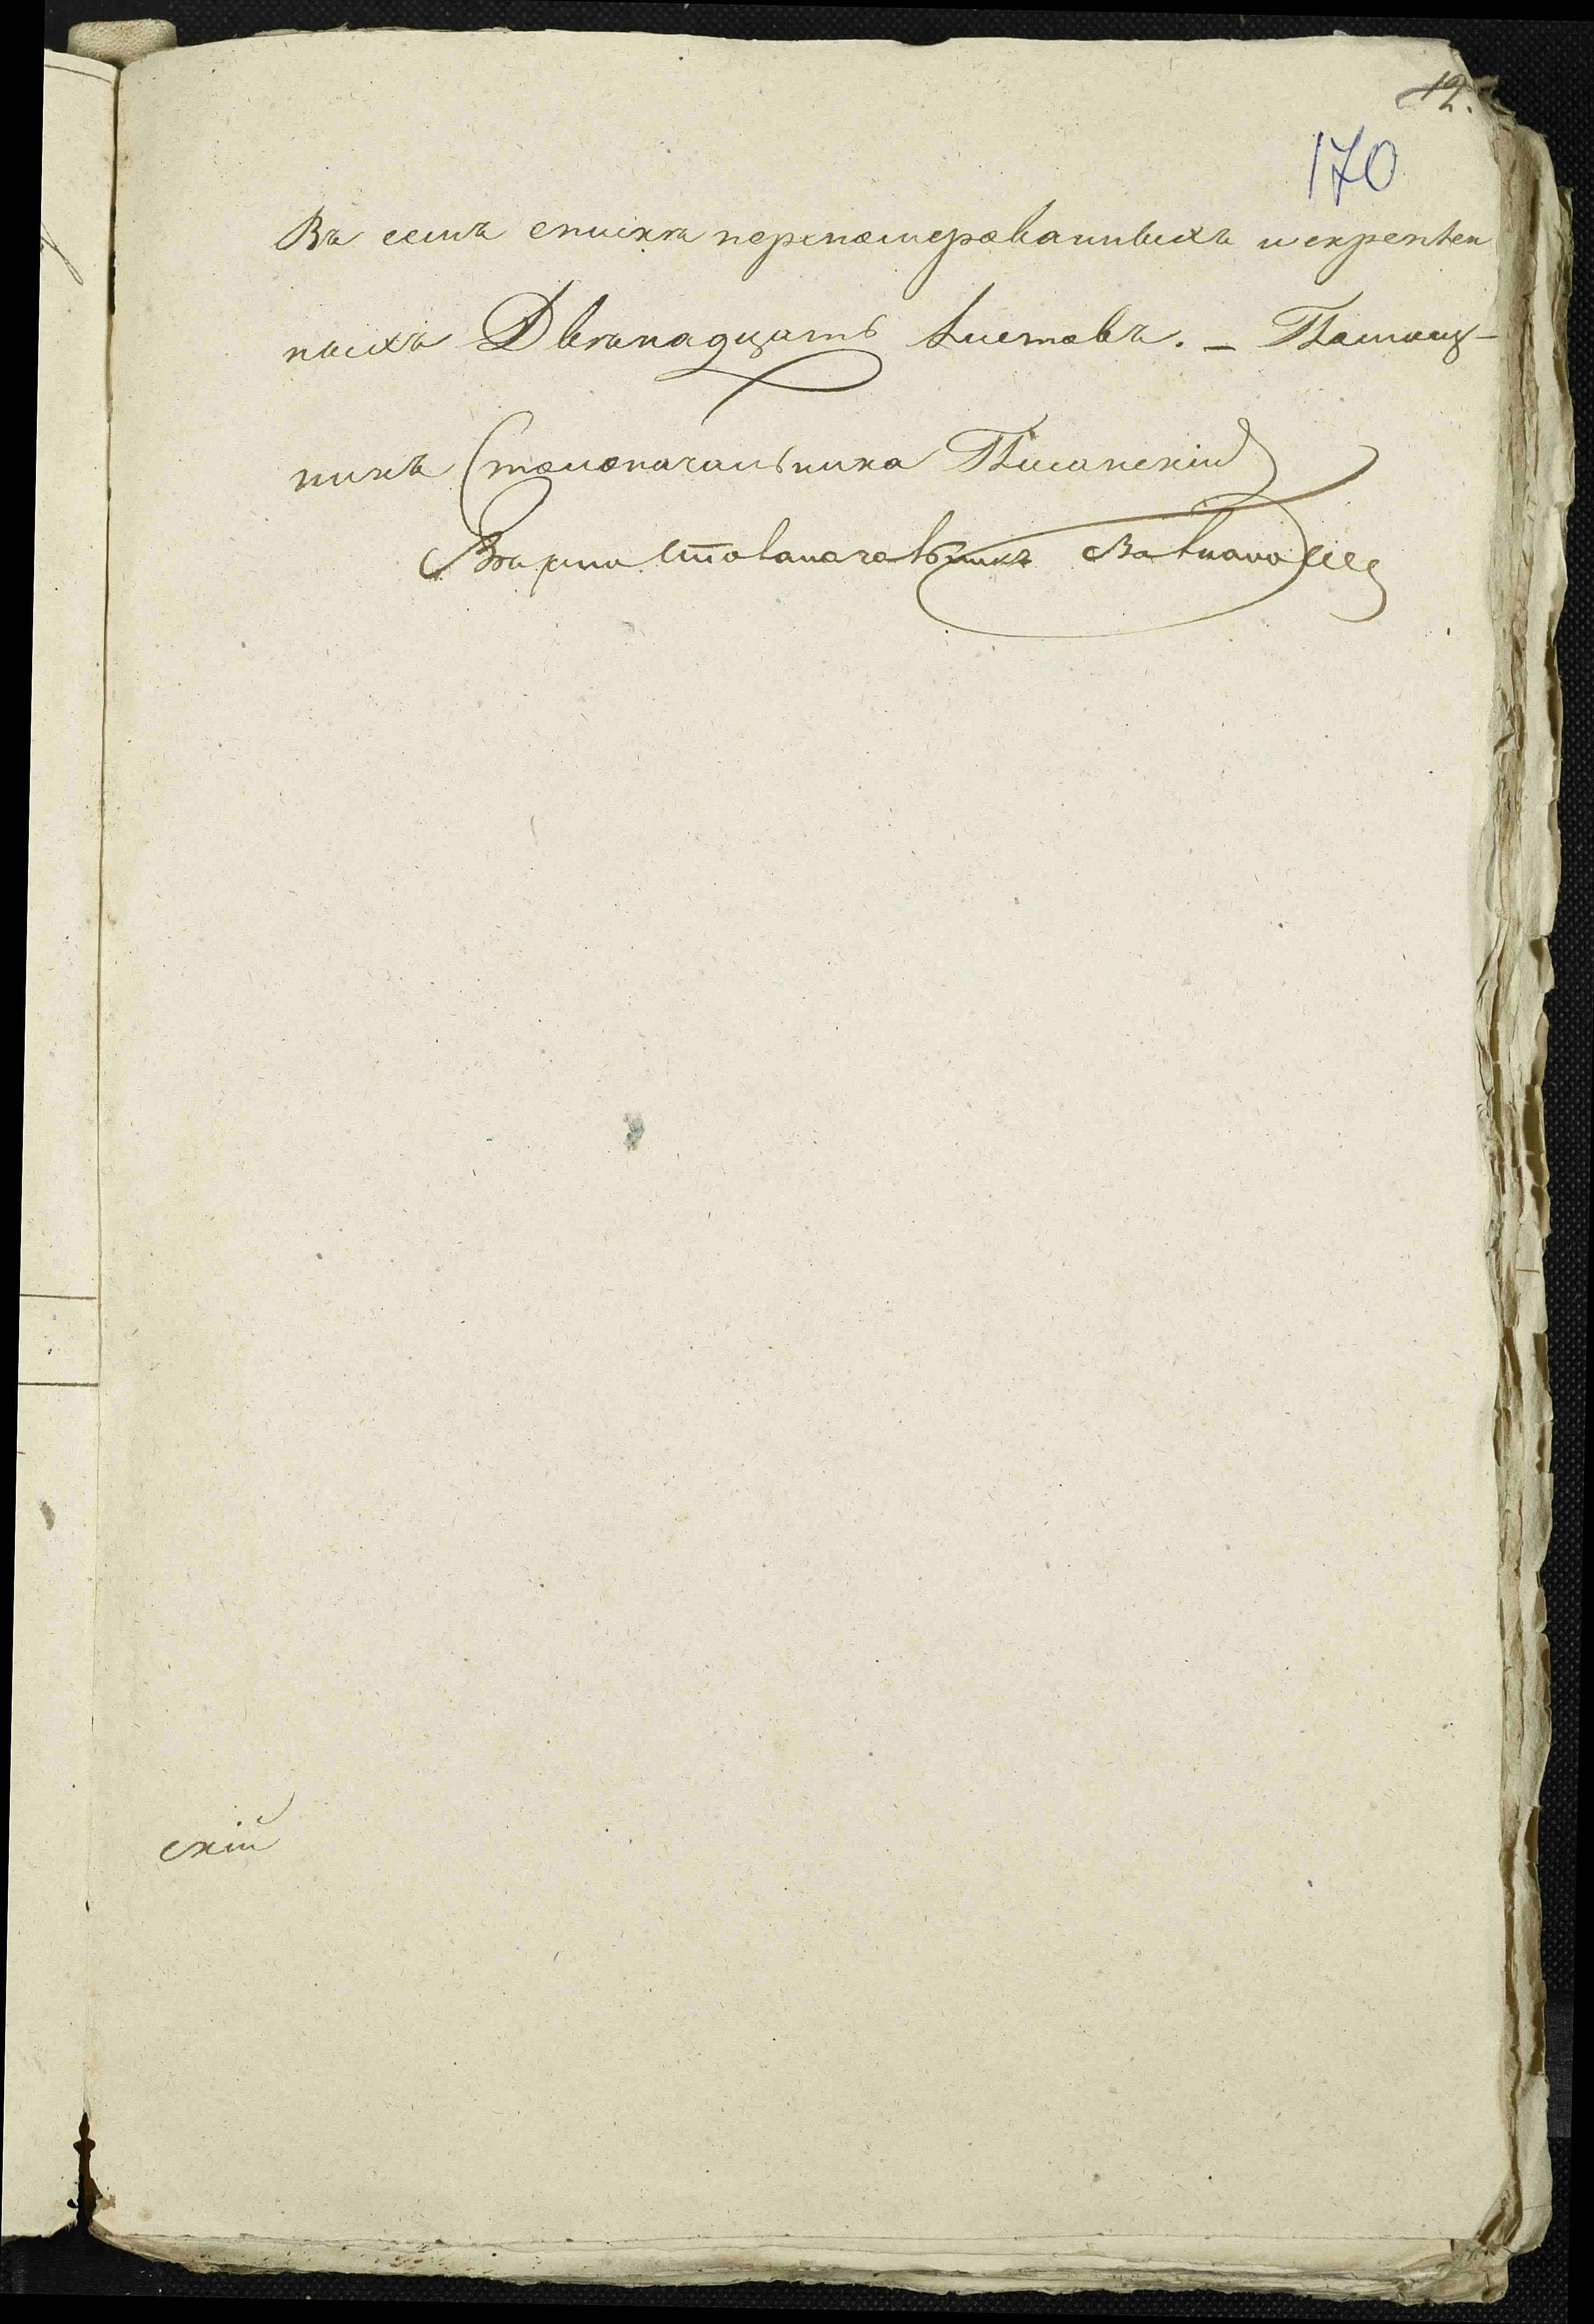 12.
170
Въ семъ спискѣ переномерованныхъ и скрѣплен
ныхъ Двѣнадцать листовъ. – Помощ-
никъ Столоначальника Писанскій
Вѣрно Столоначальникъ
скій